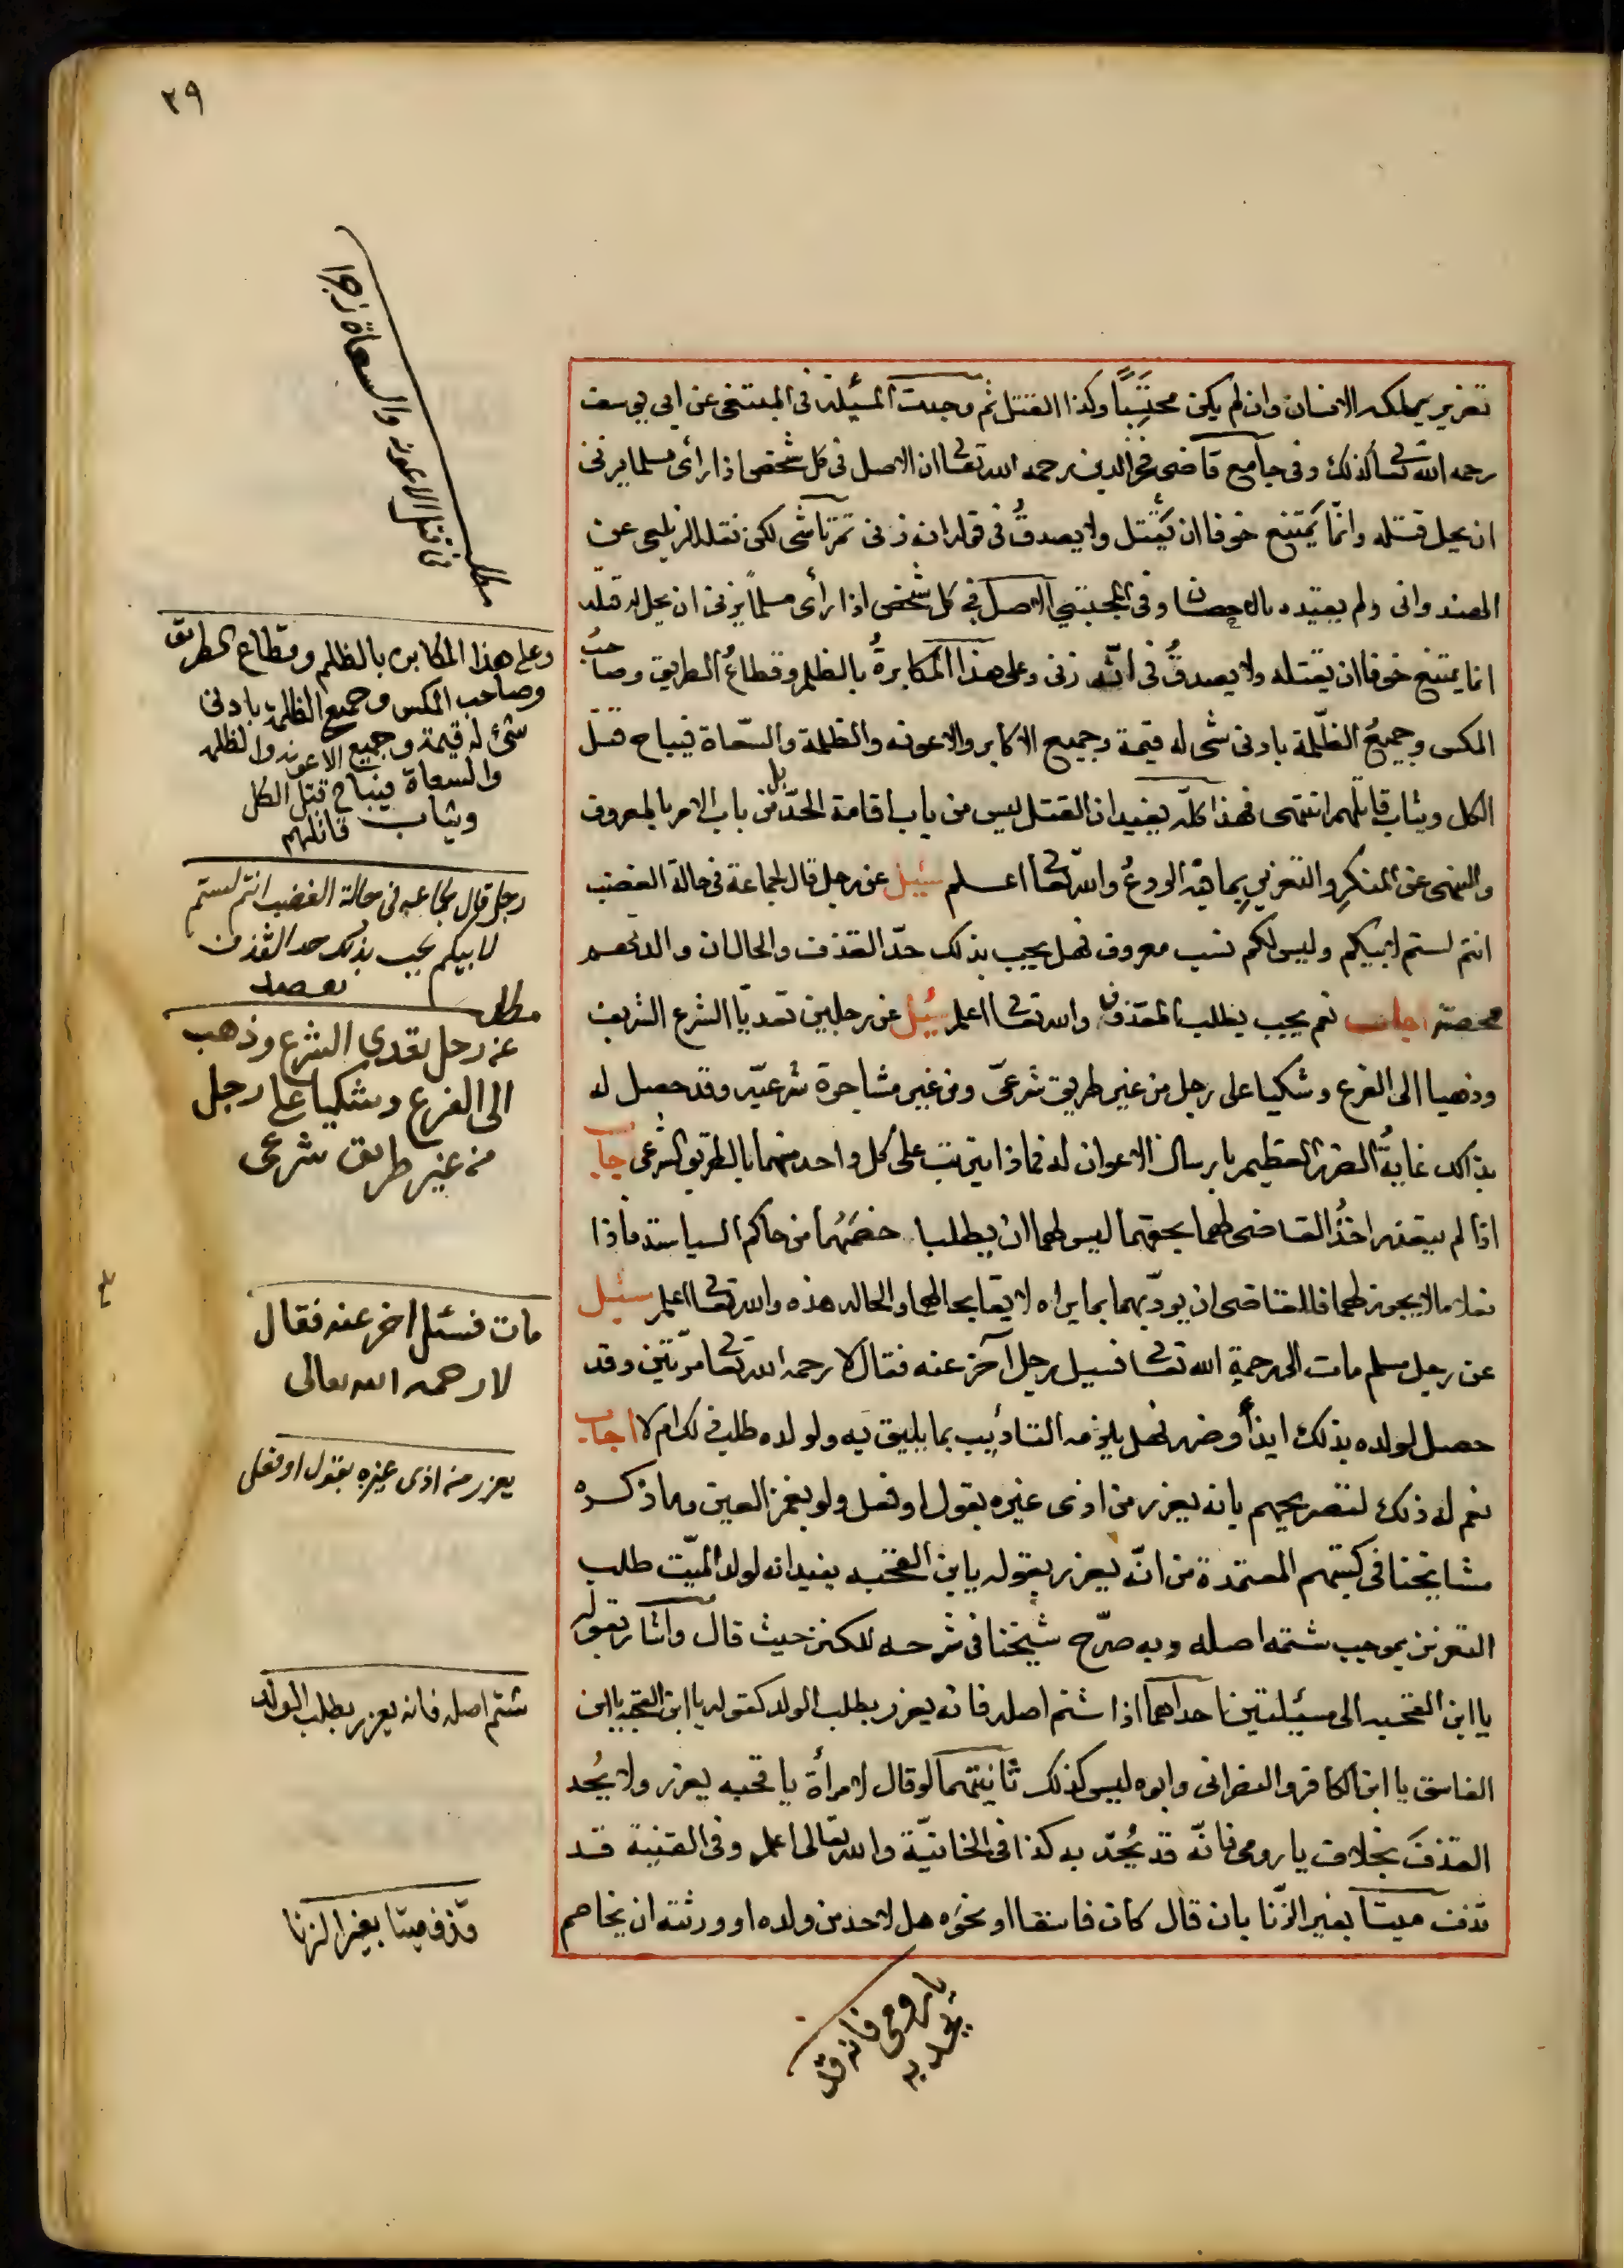 ٢٩
تعزير يملكه الانسان وان لم يكن محتسبًا وكذا القتل ثم وجدت المسئلة فى المنتقى عن ابى يوسف
رحمه الله تعالى كذلك وفى جامع قاضى فخر الدين رحمه الله تعالى ان الاصل فى كل شخص اذا رأى مسلما يزنى
ان يحل قتله وانما يمتنع خوفا ان يقتل ولا يصدق فى قوله انه زنى تمرتاشى لكن نقله الزيلعى عن
الهندوانى ولم يقيده بالاحصان وفى المجتبى الاصل فى كل شخص اذا رأى مسلما يزنى ان يحل له قتله
انما يمتنع خوفا ان يقتله ولا يصدق فى انه زنى وعلى هذا المكابرة بالظلم وقطاع الطريق وصاحب
المكس وجميع الظلمة بادنى شى له قيمة وجميع الاكابر والاعونه والظلمة والسعاة فيباح قتل
الكل ويثاب قاتلهم انتهى فهذا كله يفيد ان القتل ليس من باب اقامة الحد بل من باب الامر بالمعروف
والنهى عن المنكر والتعزير بما فيه الردع والله تعالى اعلم سئيل عن رجل قال لجماعة فى حالة الغضب
انتم لستم لابيكم وليس لكم نسب معروف فهل يجب بذلك حد القذف والحال ان والدتهم
محصنة اجاب نعم يجب بطلب المقذوف والله تعالى اعلم سئيل عن رجلين تعديا الشرع الشريف
وذهبا الى الفرع وشكيا على رجل من غير طريق شرعى ومن غير مشاجرة شرعيه وقد حصل له
بذلك غاية الضرر العظيم بارسال الاعوان له فماذا يترتب على كل واحد منهما بالطريق الشرعى اجاب
اذا لم يتعذر اخذ القاضى لهما بحقهما ليس لهما ان يطلبا خصمهما من حاكم السياسة فاذا
فعلا ما لا يجوز لهما فللقاضى ان يودبهما بما يراه لايقا بحالهما والحاله هذه والله تعالى اعلم سئيل
عن رجل مسلم مات الى رحمة الله تعالى فسيل رجل آخر عنه فقال لا رحمه الله تعالى مرتين وقد
حصل لولده بذلك ايذأ وضرر فهل يلزمه التأديب بما يليق به ولولده طلب ذلك ام لا اجاب
نعم له ذلك لتصريحهم بانه يعزر من اذى غيره بقول او فعل ولو بغمز العين وما ذكره
مشايخنا فى كتبهم المعتمدة من انه يعزر بقوله يا ابن القحبه يفيد انه لولد الميت طلب
التعزير بموجب شتمه اصله وبه صرح شيخنا فى شرحه للكنز حيث قال واشار بقوله
يا ابن القحبه الى مسيلتين احداهما اذا شتم اصله فانه يعزر بطلب الولد كقوله يا ابن القحبه يا ابن
الفاسق يا ابن الكافر والنصرانى وابوه ليس كذلك ثانيتهما لو قال لامرأة يا قحبه يعزر ولا يحد
القذف بخلاف يا رومى فانه قد يحد به كذا فى الخانية والله تعالى اعلم وفى القنية قد
قذف ميتا بغير الزنا بان قال كان فاسقا او نحوه هل لاحد من ولده او ورثته ان يخاصم
مطلب قاتل الاعونه والسعاة
وعلى هذا المكابره بالظلم وقطاع الطريق
وصاحب المكس وجميع الظلمة بادنى
شئ له قيمة وجميع الاعونه والظلمه
والسعاة فيباح قتل الكل
ويثاب قاتلهم
رجل قال لجماعه فى حالة الغضب انتم لستم
لابيكم يجب بذلك حد القذف
مطلب
عن رجل تعدى الشرع وذهب
الى الفرع وشكيا على رجل
من غير طريق شرعى
مات فسئل اخر عنه فقال
لا رحمه الله تعالى
يعزر من اذى غيره بقول او فعل
شتم اصله فانه يعزر بطلب الولد
قذف ميتا بغير الزنا
يا رومى فانه قد
يحد به